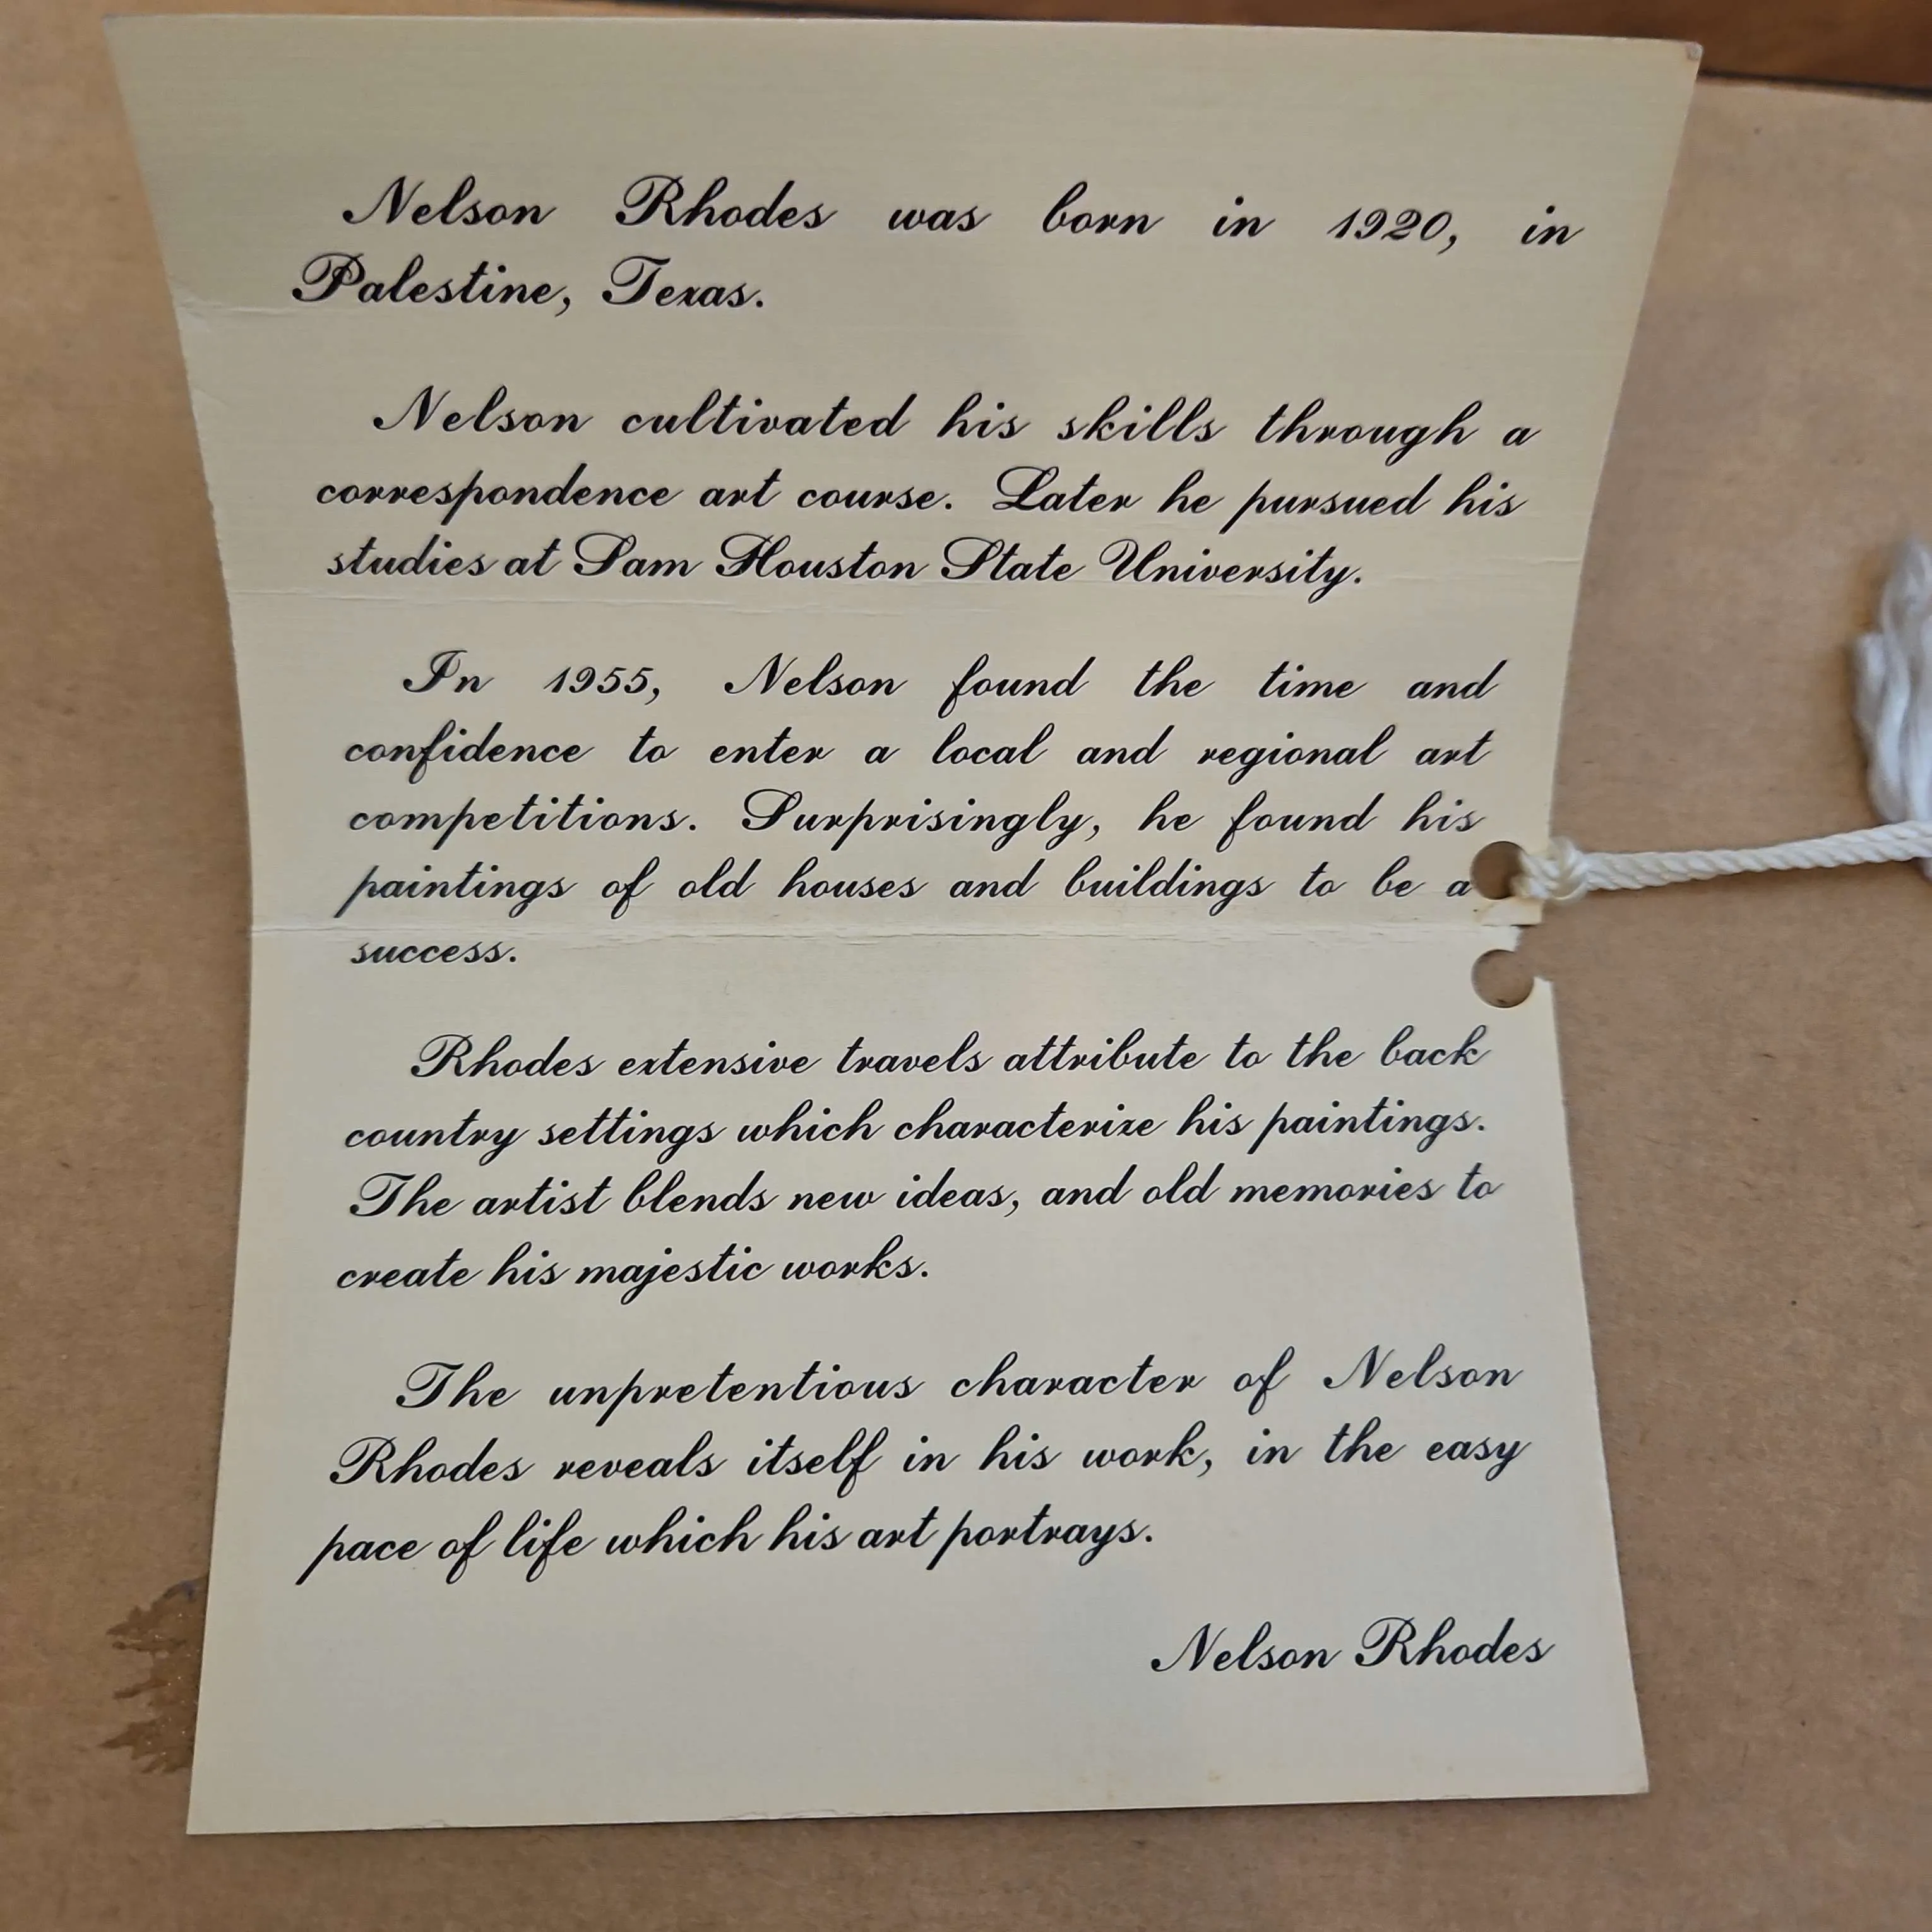 Nelson Rhodes was born in 1920, in
Palestine, Texas.
Nelson cultivated his skills through a
correspondence art course. Later he pursued his
studies at Sam Houston State University.
In 1955, Nelson found the time and
confidence to enter a local and regional art
competitions. Surprisingly, he found his
paintings of old houses and buildings to be a
success.
Rhodes extensive travels attribute to the back
country settings which characterize his paintings.
The artist blends new ideas, and old memories to
create his majestic works.
The unpretentious character of Nelson
Rhodes reveals itself in his work, in the easy
pace of life which his art portrays.
Nelson Rhodes